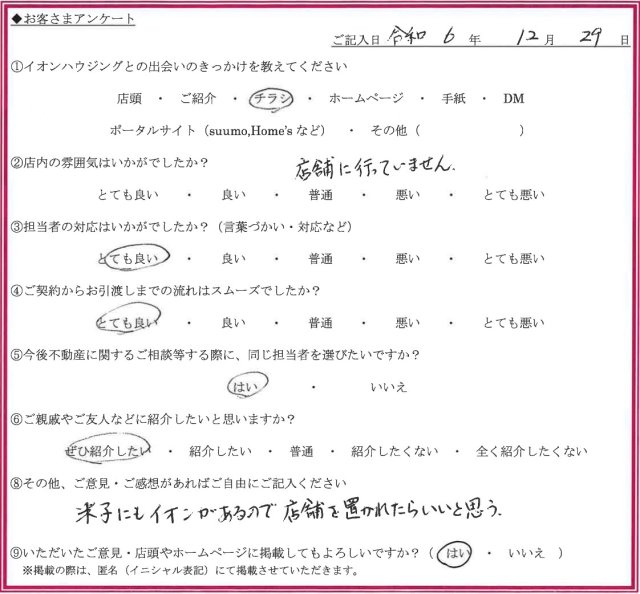 ◆お客さまアンケート
ご記入日 令和 6 年 12 月 29 日
①イオンハウジングとの出会いのきっかけを教えてください
店頭 ・ ご紹介 ・ チラシ ・ ホームページ ・ 手紙 ・ DM
ポータルサイト（suumo,Home's など） ・ その他（ ）
②店内の雰囲気はいかがでしたか？ 店舗に行っていません.
とても良い ・ 良い ・ 普通 ・ 悪い ・ とても悪い
③担当者の対応はいかがでしたか？（言葉づかい・対応など）
とても良い ・ 良い ・ 普通 ・ 悪い ・ とても悪い
④ご契約からお引渡しまでの流れはスムーズでしたか？
とても良い ・ 良い ・ 普通 ・ 悪い ・ とても悪い
⑤今後不動産に関するご相談等する際に、同じ担当者を選びたいですか？
はい ・ いいえ
⑥ご親戚やご友人などに紹介したいと思いますか？
ぜひ紹介したい ・ 紹介したい ・ 普通 ・ 紹介したくない ・ 全く紹介したくない
⑧その他、ご意見・ご感想があればご自由にご記入ください
米子にもイオンがあるので店舗を置かれたらいいと思う.
⑨いただいたご意見・店頭やホームページに掲載してもよろしいですか？（ はい ・ いいえ ）
※掲載の際は、匿名（イニシャル表記）にて掲載させていただきます。